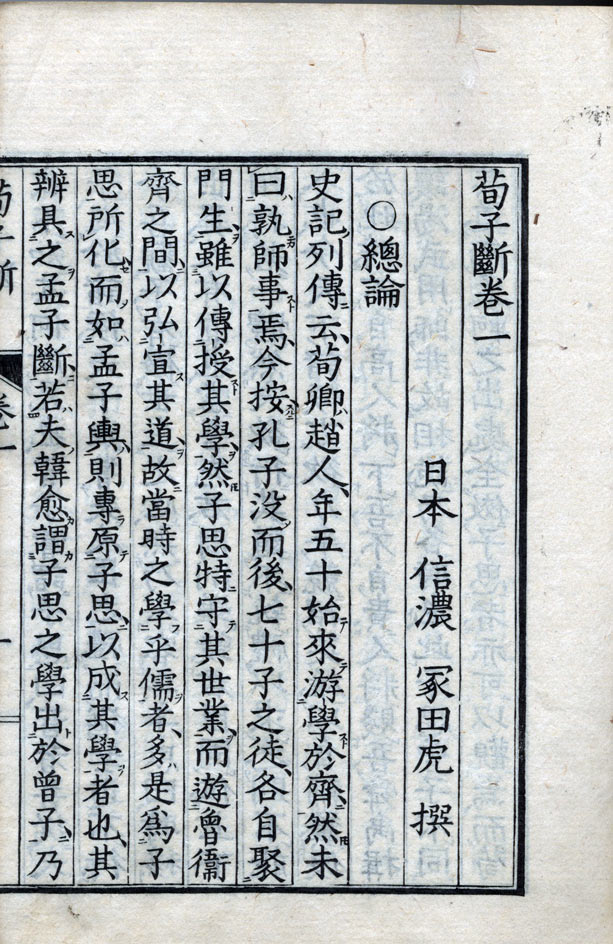 荀子斷卷一
日本 信濃 冢田虎 撰
○總論
史記列傳云荀卿趙人年五十始來游學於齊然未
曰孰師事焉今按孔子没而後七十子之徒各自聚
門生雖以傳授其學然子思特守其世業而遊魯衞
齊之間以弘宣其道故當時之學乎儒者多是爲子
思所化而如孟子輿則專原子思以成其學者也其
辨具之孟子斷若夫韓愈謂子思之學出於曾子乃
荀子斷
卷一
一